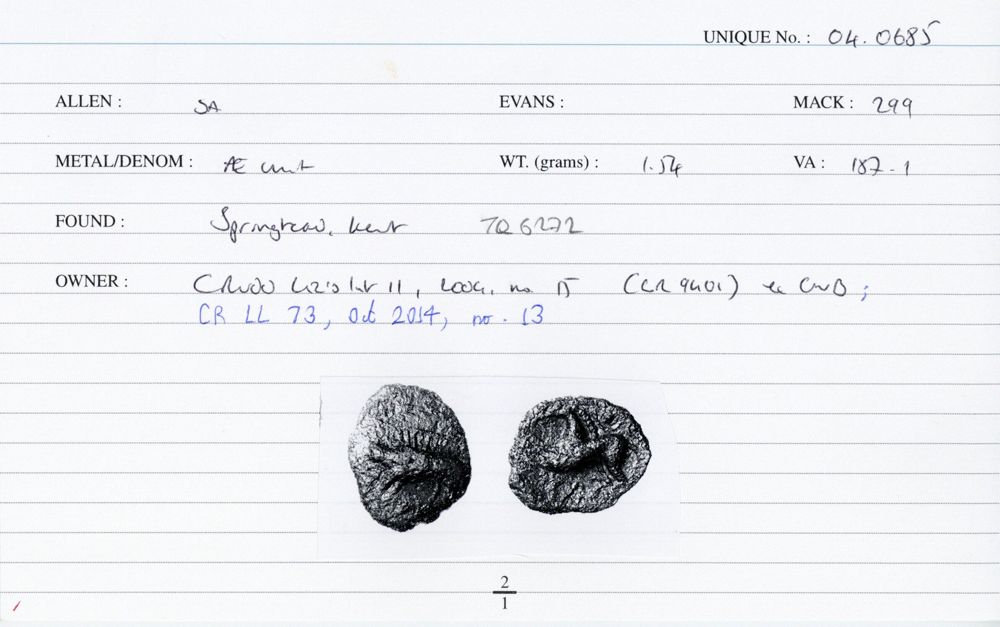 UNIQUE No. : 04.0685
ALLEN : SA EVANS : MACK : 299
METAL/DENOM : Æ unit WT. (grams) : 1.54 VA : 187-1
FOUND : Springhead, Kent TQ6272
OWNER : List 11, 2004, no 15 (CR 9401) ex
CR LL 73, Oct 2014, no. 13
2
1